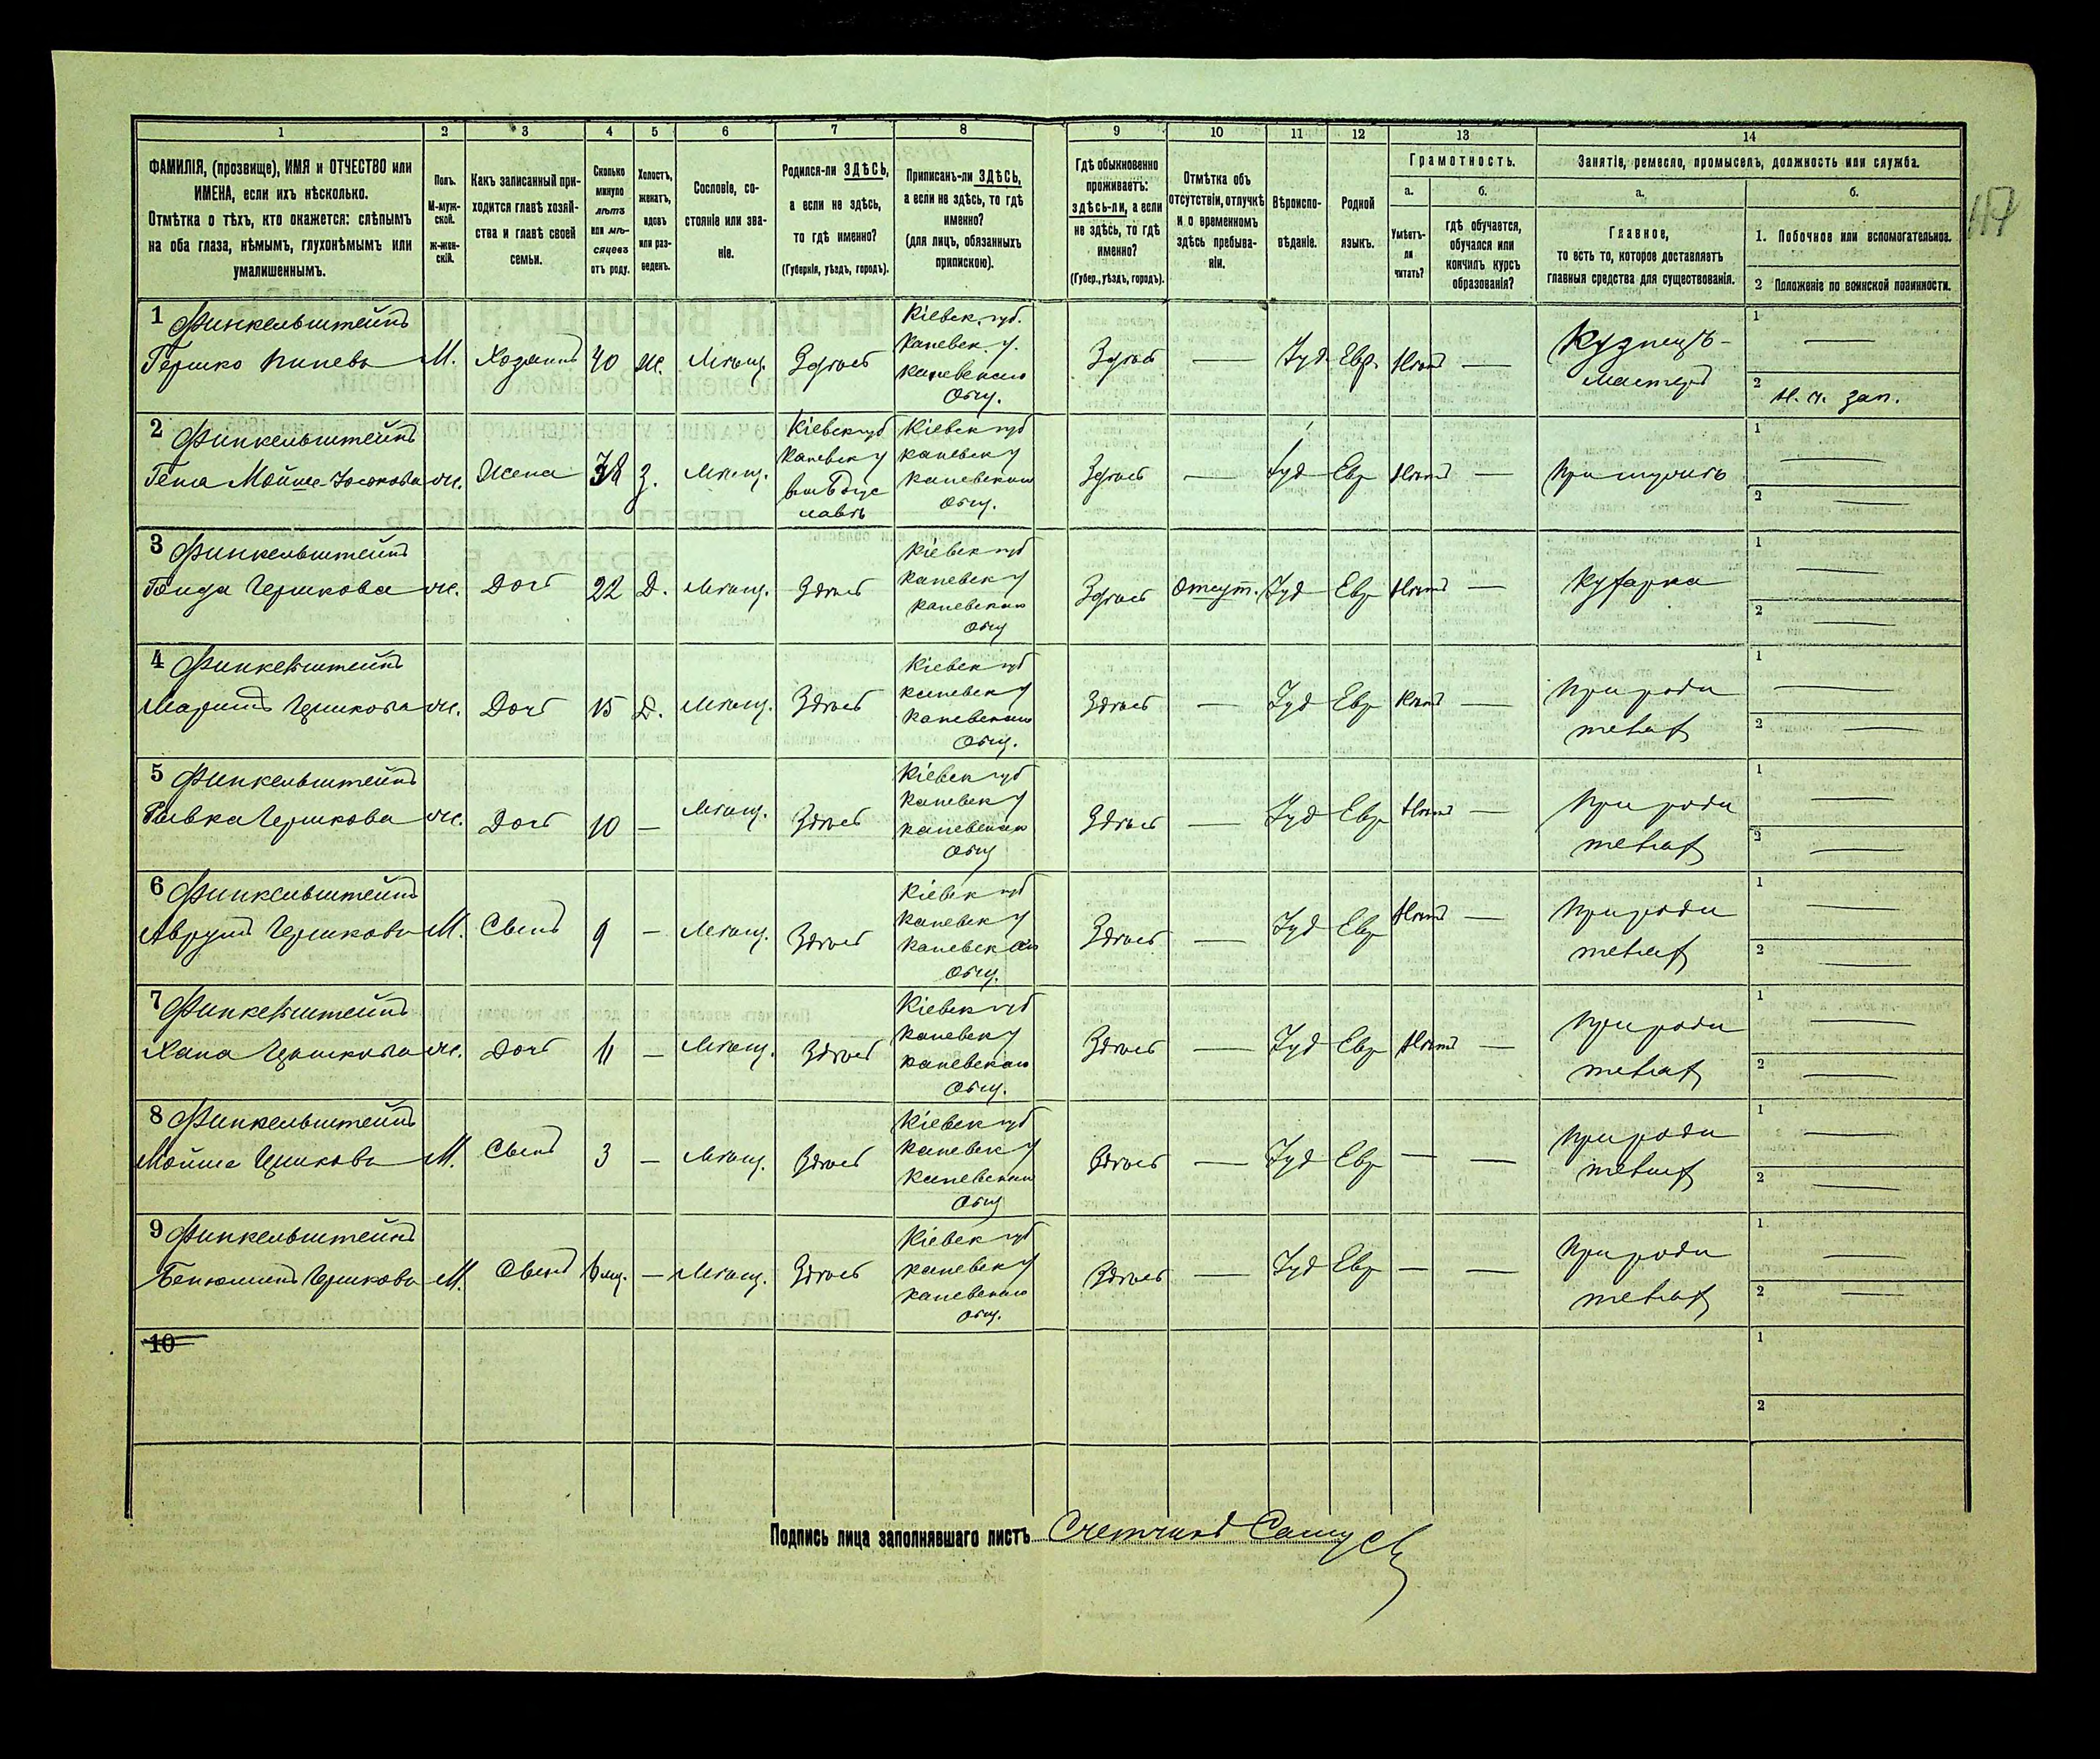 1 2 3 4 5 6 7 8 9 10 11 12 13 14
ФАМИЛІЯ, (прозвище), ИМЯ и ОТЧЕСТВО или
ИМЕНА, если ихъ нѣсколько.
Отмѣтка о тѣхъ, кто окажется: слѣпымъ
на оба глаза, нѣмымъ, глухонѣмымъ или
умалишеннымъ.
Полъ.
М-муж-
ской.
Ж-жен-
скій.
Какъ записанный при-
ходится главѣ хозяй-
ства и главѣ своей
семьи.
Сколько
минуло
лѣтъ
или мѣ-
сяцевъ
отъ роду.
Холостъ,
женатъ,
вдовъ
или раз-
веденъ.
Сословіе, со-
стояніе или зва-
ніе.
Родился-ли ЗДѢСЬ,
а если не здѣсь,
то гдѣ именно?
(Губернія, уѣздъ, городъ).
Приписанъ-ли ЗДѢСЬ,
а если не здѣсь, то гдѣ
именно?
(для лицъ, обязанныхъ
припискою).
Гдѣ обыкновенно
проживаетъ:
здѣсь-ли, а если
не здѣсь, то гдѣ
именно?
(Губер., уѣздъ, городъ).
Отмѣтка объ
отсутствіи, отлучкѣ
и о временномъ
здѣсь пребыва-
ніи.
Вѣроиспо-
вѣданіе.
Родной
языкъ.
Грамотность.
а.
Умѣетъ-
ли
читать?
б.
гдѣ обучается,
обучался или
кончилъ курсъ
образованія?
Занятіе, ремесло, промыселъ, должность или служба.
а.
Главное,
то есть то, которое доставляетъ
главныя средства для существованія.
б.
1. Побочное или вспомогательное.
2 Положеніе по воинской повинности.
1 Финкельштейнъ
Гершко Пиневъ М. Хозяинъ 40 Ж. Мѣщ. Здѣсь
Кіевск. губ.
Каневск. у.
Каневскаго
Общ.
Здѣсь — Іуд. Евр. Нѣтъ —
Кузнецъ-
мастеръ
1 —
2 Н. ч. зап.
2 Финкельштейнъ
Мойше-Іоськова ж. Жена 38 З. Мѣщ.
Кіевск губ
Каневск у
Богус
лавѣ
Кіевск губ
Каневск у
Каневскаго
Общ.
Здѣсь — Іуд Евр Нѣтъ —
При мужѣ
1 —
2 —
3 Финкельштейнъ
Гершкова ж. Доч 22 Д. Мѣщ. Здѣсь
Кіевск губ
Каневск у
Каневскаго
Общ
Здѣсь Отсут. Іуд Евр Нѣтъ —
Кухарка
1 —
2 —
4 Финкельштейнъ
Гершкова ж. Доч 15 Д. Мѣщ. Здѣсь
Кіевск губ
Каневск у
Каневскаго
Общ.
Здѣсь — Іуд Евр Нѣтъ —
При роди
телях
1 —
2 —
5 Финкельштейнъ
Ривка Гершкова ж. Доч 10 — Мѣщ. Здѣсь
Кіевск губ
Каневск у
Каневскаго
Общ
Здѣсь — Іуд Евр Нѣтъ —
При роди
телях
1 —
2 —
6 Финкельштейнъ
Аврумъ Гершковъ М. Сынъ 9 — Мѣщ. Здѣсь
Кіевск губ
Каневск у
Каневскаго
Общ.
Здѣсь — Іуд Евр Нѣтъ —
При роди
телях
1 —
2 —
7 Финкельштейнъ
Хана Гершкова ж. Доч 11 — Мѣщ. Здѣсь
Кіевск губ
Каневск у
Каневскаго
Общ.
Здѣсь — Іуд Евр Нѣтъ —
При роди
телях
1 —
2 —
8 Финкельштейнъ
Мойше Гершковъ М. Сынъ 3 — Мѣщ. Здѣсь
Кіевск губ
Каневск у
Каневскаго
Общ
Здѣсь — Іуд Евр — —
При роди
телях
1 —
2 —
9 Финкельштейнъ
Беньюминъ Гершковъ М. Сынъ 6 мц. — Мѣщ. Здѣсь
Кіевск губ
Каневск у
Каневскаго
Общ.
Здѣсь — Іуд Евр — —
При роди
телях
1 —
2 —
10
1
2
Подпись лица заполнявшаго листъ Счетчикъ